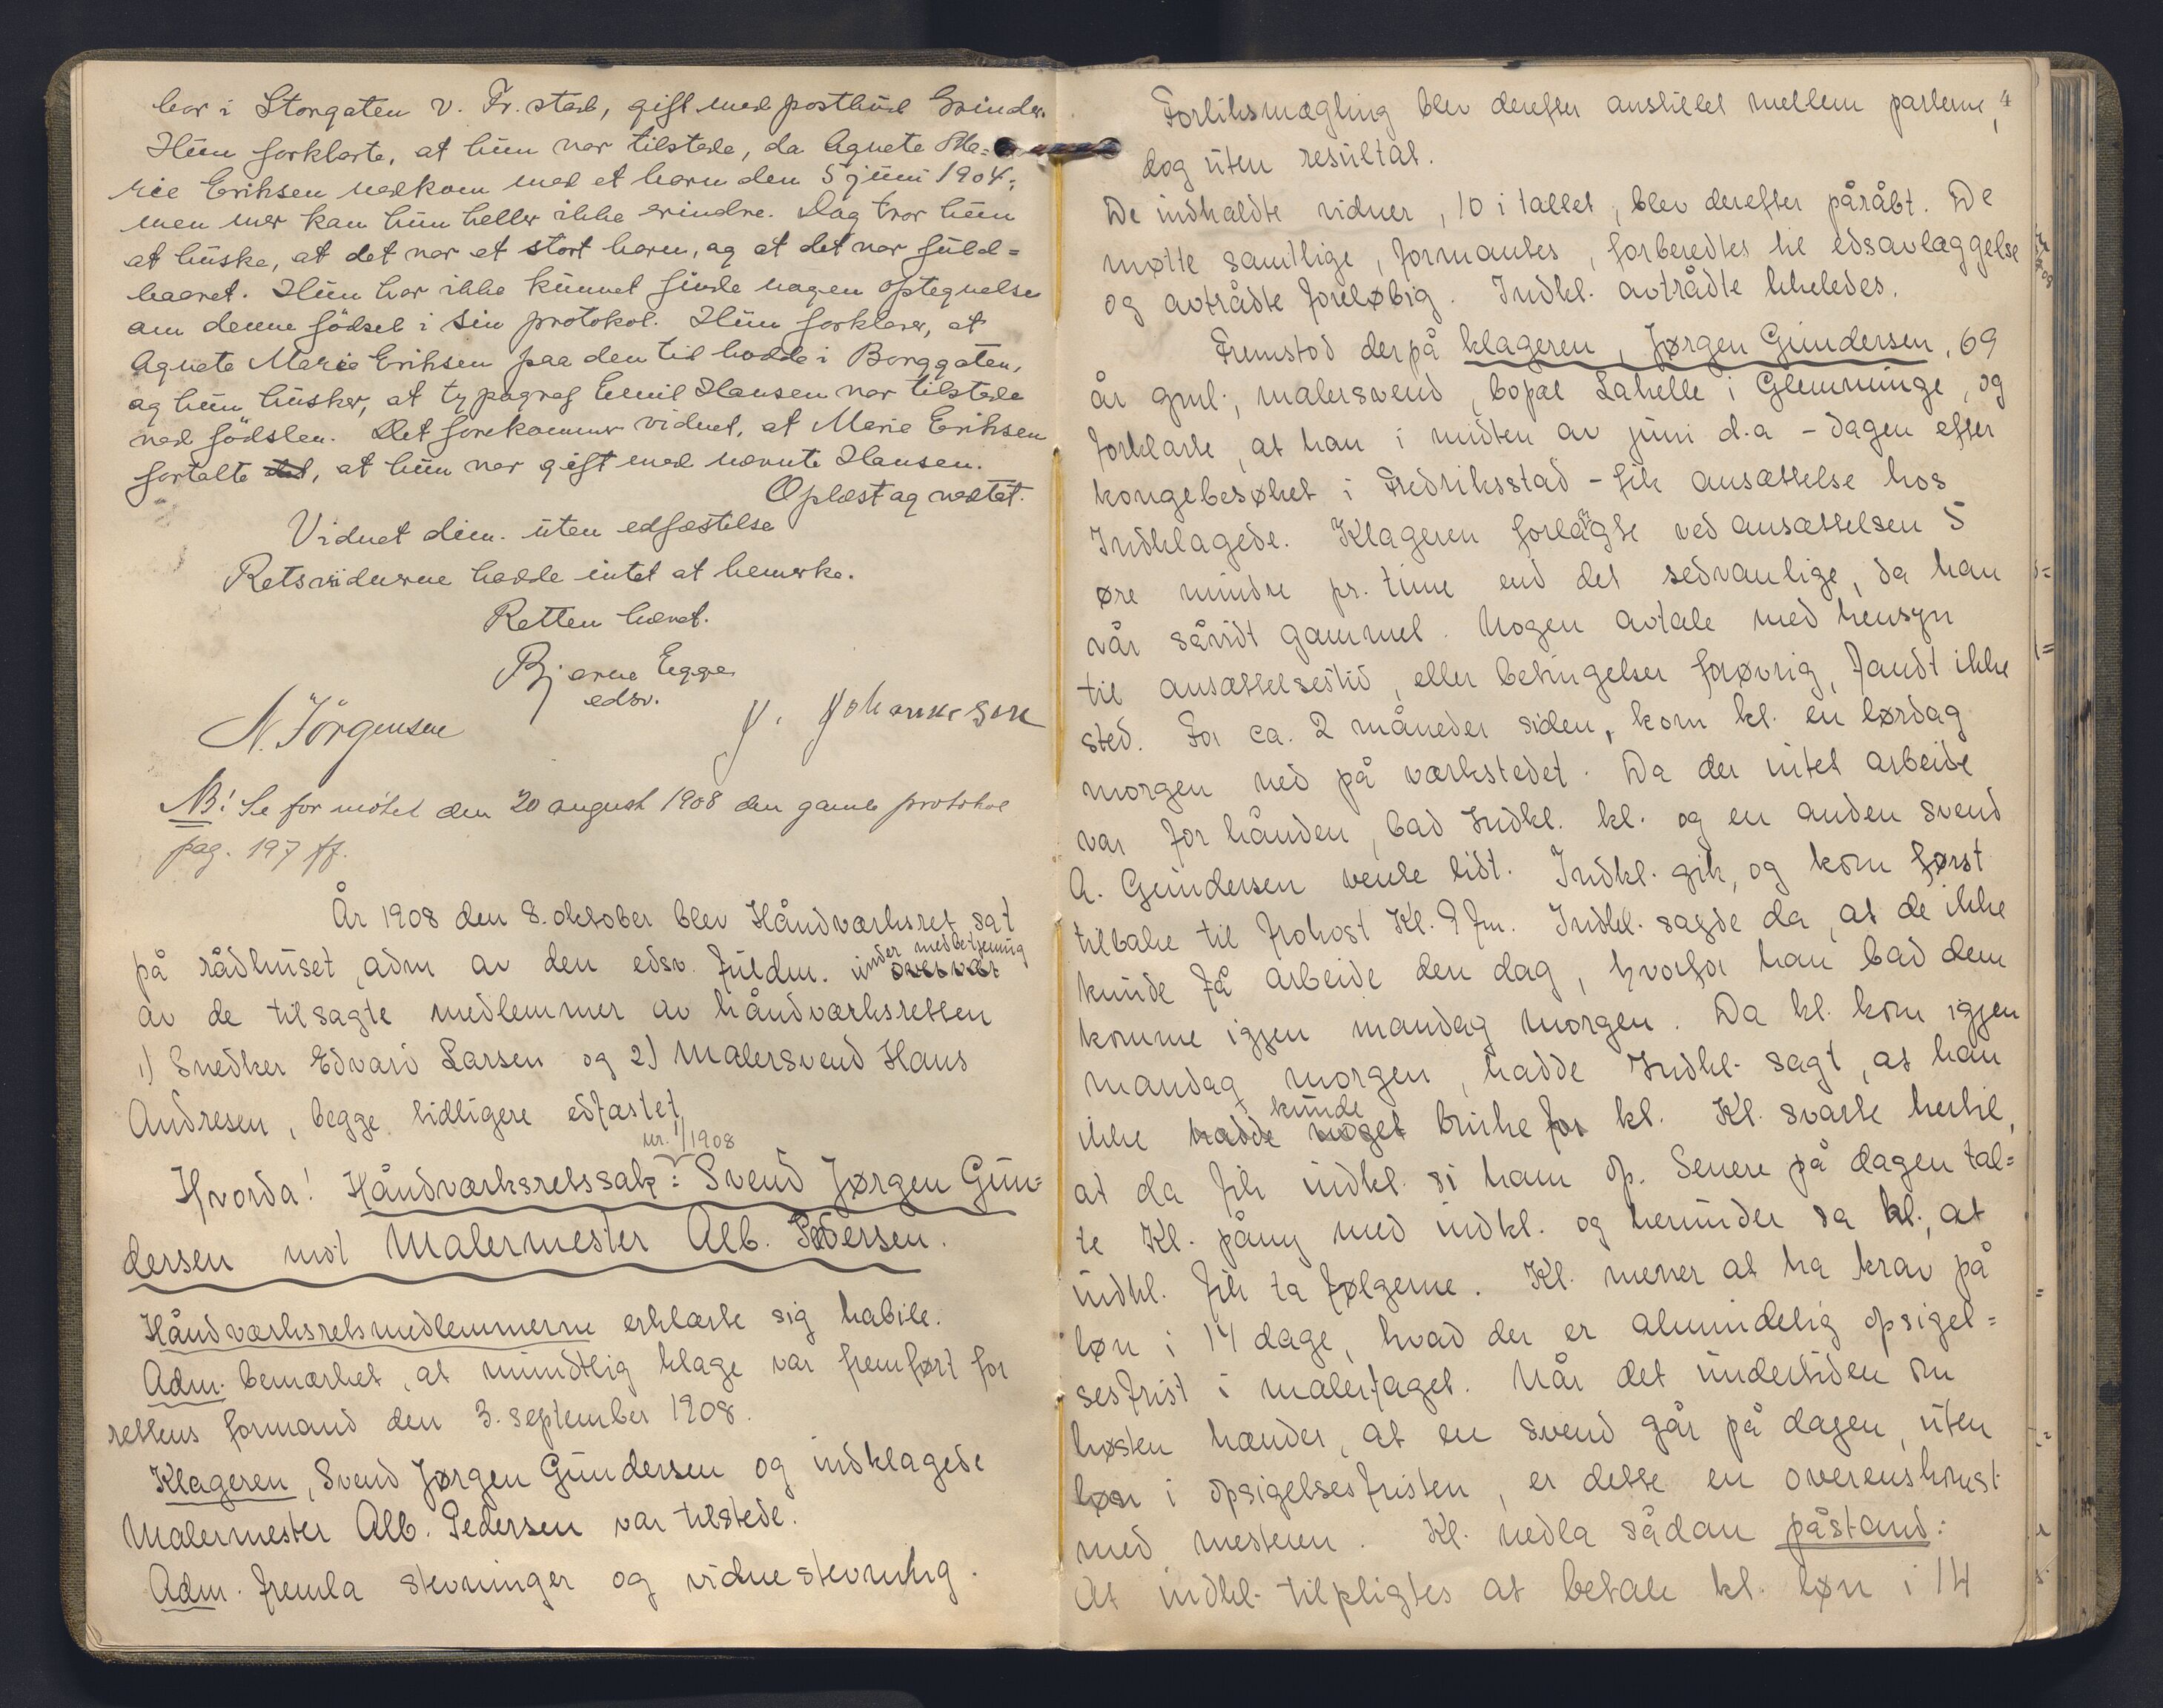 bor i Storgaten v. Fr.stad, gift med postbud Grinder.
Hun forklarte, at hun var tilstede, da Agnete Ma=
rie Eriksen nedkom med et barn den 5 juni 1904;
men mer kan hun heller ikke erindre. Dog tror hun
at huske, at det var et stort barn, og at det var fuld=
baaret. Hun har ikke kunnet finde nogen optegnelse
om denne födsel i sin protokol. Hun forklarer, at
Agnete Marie Eriksen paa den tid bodde i Borggaten,
og hun husker, at typograf Emil Hansen var tilstede
ved födslen. Det forekommer vidnet, at Marie Eriksen
fortalte det, at hun var gift med nævnte Hansen.
Oplæst og vedtat.
Vidnet dim. uten edfæstelse
Retsvidnerne hadde intet at bemerke.
Retten hævet.
Bjarne Egge
edsv.
N. Jörgensen
J. Johannesen
NB! Se for mötet den 20 august 1908 den gamle protokol
pag. 197 ff.
År 1908 den 8. oktober blev Håndværksret sat
på rådhuset, adm av den edsv. fuldm. under medbetjening overvær
av de tilsagte medlemmer av håndværksretten
1) Snedker Edvard Larsen og 2) Malersvend Hans
Andresen, begge tidligere edfæstet
nr. 1/1908
Hvorda! Håndværksretssak: Svend Jørgen Gun=
dersen mot Malermester Alb. Pedersen.
Håndværksretsmedlemmerne erklærte sig habile.
Adm. bemærket, at mundtlig klage var fremført for
rettens formand den 3. september 1908.
Klageren, Svend Jørgen Gundersen og indklagede
Malermester Alb. Pedersen var tilstede.
Adm. fremla stevninger og vidnestevning.
4
Forliksmægling blev derefter anstillet mellem parterne,
dog uten resultat.
De indkaldte vidner, 10 i tallet, blev derefter påråbt. De
møtte samtlige, formantes, forberedtes til edsavlæggelse
og avtrådte foreløbig. Indkl. avtrådte likeledes.
Fremstod derpå klageren, Jørgen Gundersen, 69
år gml., malersvend, bopæl Lahelle i Glemminge, og
forklarte, at han i midten av juni d.a - dagen efter
kongebesøket i Fredriksstad - fik ansættelse hos
Indklagede. Klageren forlangte ved ansættelsen 5
øre mindre pr. time end det sedvanlige, da han
vår såvidt gammel. Nogen avtale med hensyn
til ansættelsestid, eller betingelser forøvrig, fandt ikke
sted. For ca. 2 måneder siden, kom kl. en lørdag
morgen ned på værkstedet. Da der intet arbeide
var for hånden, bad Indkl. kl. og en anden svend
A. Gundersen vente lidt. Indkl. gik, og kom først
tilbake til frokost Kl. 9 fm. Indkl. sagde da, at de ikke
kunde få arbeide den dag, hvorfor han bad dem
komme igjen mandag morgen. Da kl. kom igjen
mandag morgen, hadde Indkl. sagt, at han
ikke hadde noget kunde bruke for kl. Kl. svarte hertil,
at da fik indkl. si ham op. Senere på dagen tal=
te Kl. påny med indkl. og herunder sa kl., at
indkl. fik ta følgerne. Kl. mener at ha krav på
løn i 14 dage, hvad der er almindelig opsigel=
sesfrist i malerfaget. Når det undertiden om
høsten hænder, at en svend går på dagen, uten
løn i opsigelsesfristen, er dette en overenskomst
med mesteren. Kl. nedla sådan påstand:
At indkl. tilpligtes at betale kl. løn i 14